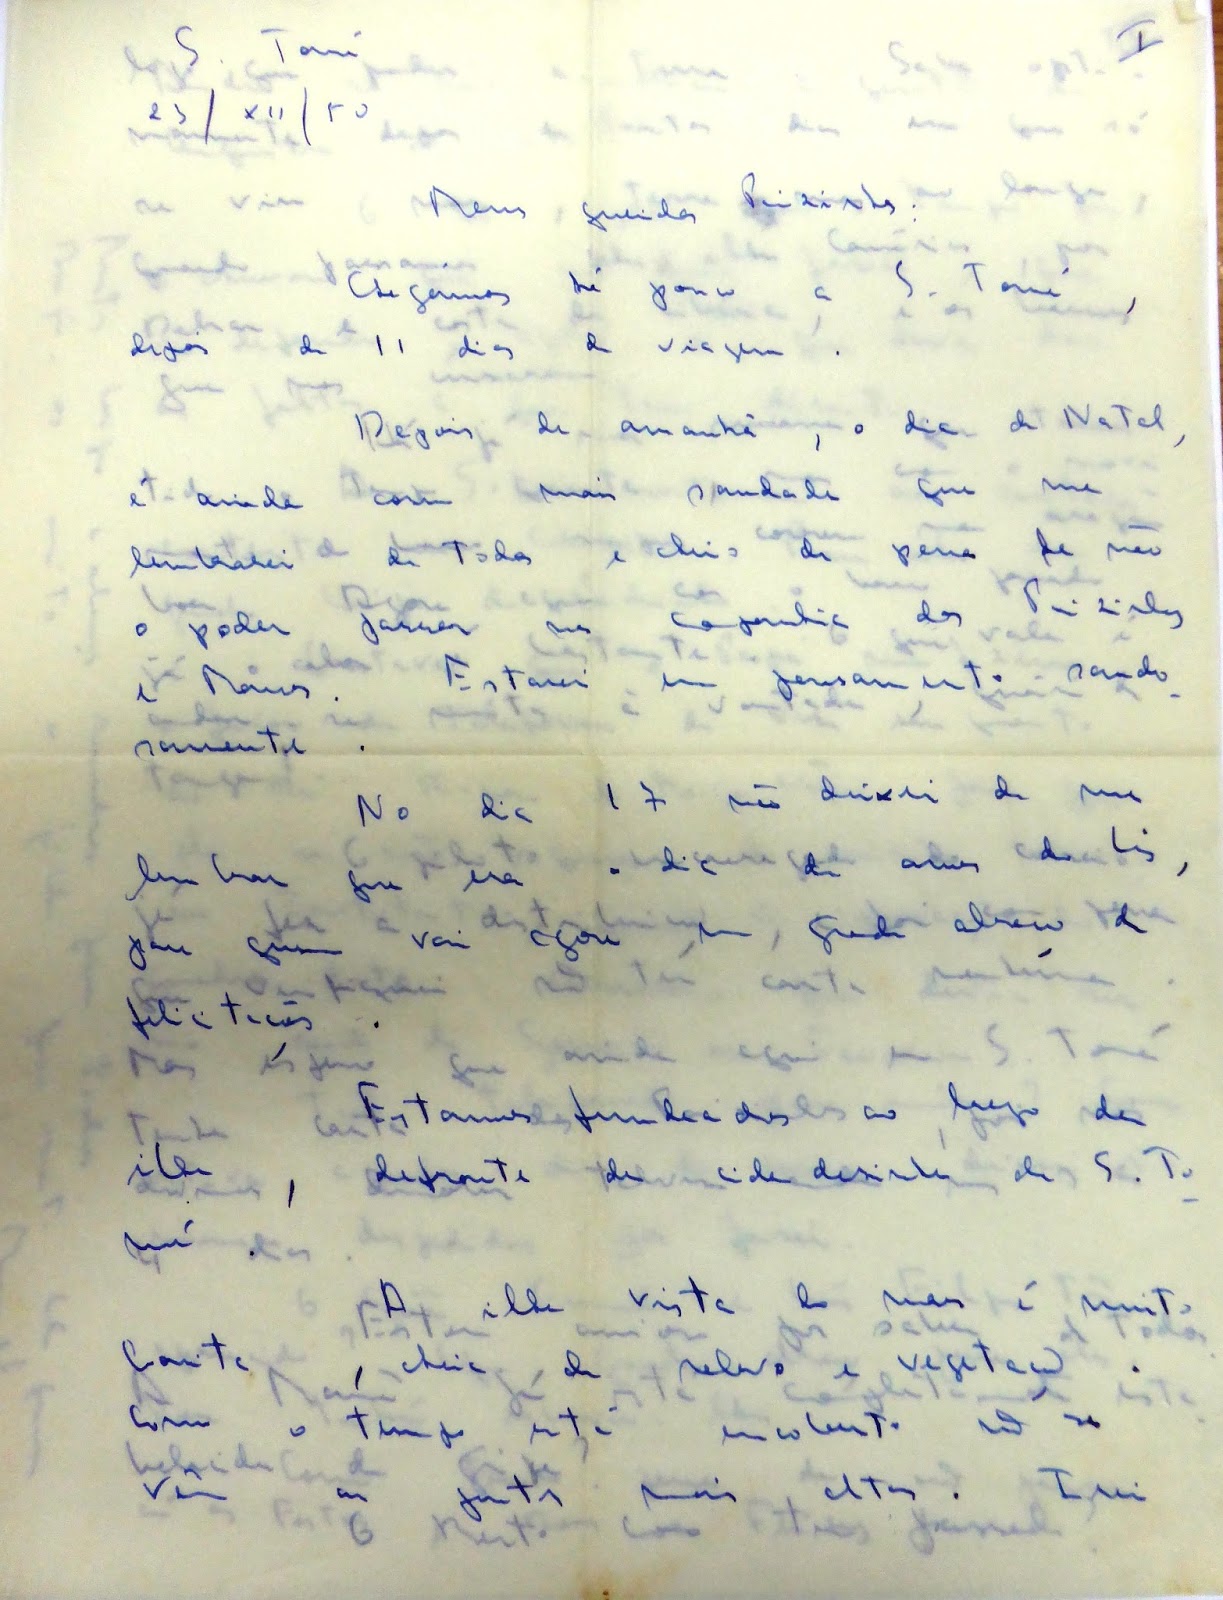 I
S. Tomé
23/XII/50
Meus queridos Paizinhos:
Chegámos há pouco a S. Tomé,
depois de 11 dias de viagem.
Depois de amanhã, o dia de Natal,
é ainda com mais saudade que me
lembrarei de todos e cheio de pena de não
o poder passar na companhia dos Paizinhos
e Manos. Estarei em pensamento saudo-
samente.
No dia 17 não deixei de me
lembrar que era o dia de anos do Lis,
para quem vai agora um grande abraço de
felicitações.
Estamos fundeados ao largo da
ilha, defronte da cidadesinha de S. To-
mé.
A ilha vista do mar é muito
bonita, cheia de relevo e vegetação.
Como o tempo está encoberto não se
vêm os pontos mais altos. Irei